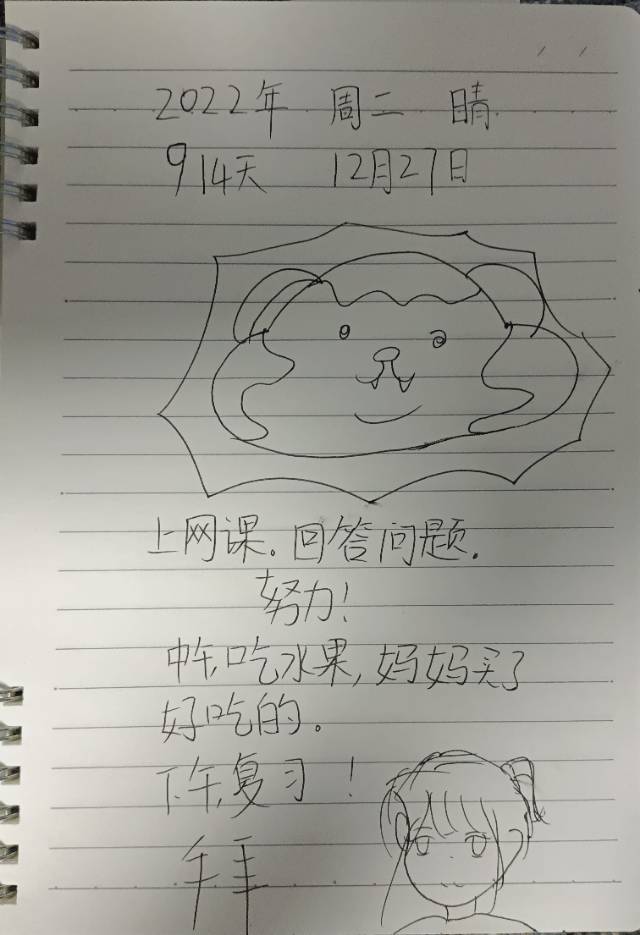 2022年 周二 晴
914天 12月27日
上网课。回答问题.
努力!
中午,吃水果,妈妈买了
好吃的。
下午,复习!
拜